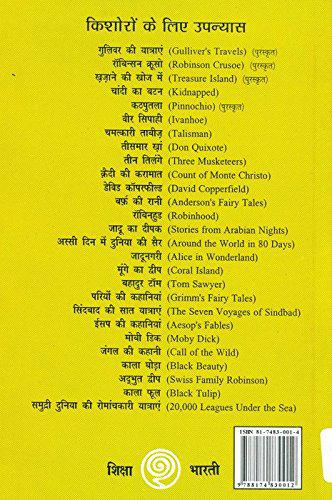 किशोरों के लिए उपन्यास
गुलिवर की यात्राएं (Gulliver's Travels) (पुरस्कृत)
रॉबिन्सन क्रूसो (Robinson Crusoe) (पुरस्कृत)
ख़ज़ाने की खोज में (Treasure Island) (पुरस्कृत)
चांदी का बटन (Kidnapped)
कठपुतला (Pinnochio) (पुरस्कृत)
वीर सिपाही (Ivanhoe)
चमत्कारी तावीज़ (Talisman)
तीसमार ख़ां (Don Quixote)
तीन तिलंगे (Three Musketeers)
क़ैदी की करामात (Count of Monte Christo)
डेविड कॉपरफील्ड (David Copperfield)
बर्फ़ की रानी (Anderson's Fairy Tales)
रॉबिनहुड (Robinhood)
जादू का दीपक (Stories from Arabian Nights)
अस्सी दिन में दुनिया की सैर (Around the World in 80 Days)
जादूनगरी (Alice in Wonderland)
मूंगे का द्वीप (Coral Island)
बहादुर टॉम (Tom Sawyer)
परियों की कहानियां (Grimm's Fairy Tales)
सिंदबाद की सात यात्राएं (The Seven Voyages of Sindbad)
ईसप की कहानियां (Aesop's Fables)
मोबी डिक (Moby Dick)
जंगल की कहानी (Call of the Wild)
काला घोड़ा (Black Beauty)
अद्भुत द्वीप (Swiss Family Robinson)
काला फूल (Black Tulip)
समुद्री दुनिया की रोमांचकारी यात्राएं (20,000 Leagues Under the Sea)
ISBN 81-7483-001-4
9 788174 830012
शिक्षा भारती